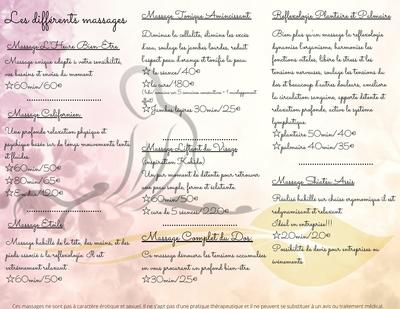 Les différents massages
Massage L'Heure Bien-Être
Massage unique adapté à votre sensibilité,
vos besoins et envies du moment.
☆60min/60€
Massage Californien
Une profonde relaxation physique et
psychique basée sur de longs mouvements lents
et fluides.
☆60min/50€
☆80min/65€
☆8 min/120€
Massage Étoile
Massage habillé de la tête, des mains, et des
pieds associé à la réflexologie. Il est
extrêmement relaxant.
☆60min/50€
Massage Tonique Amincissant
Diminue la cellulite, élimine les excès
d'eau, soulage les jambes lourdes, réduit
l'aspect peau d'orange et tonifie la peau.
☆la séance/40€
☆la cure/180€
☆Jambes légères 30min/25€
Massage Liftant du Visage
(inspiration Kobido)
Un pur moment de détente pour retrouver
une peau souple, ferme et éclatante.
☆60min/50€
☆cure de 5 séances/220€
Massage Complet du Dos
Ce massage dénouera les tensions accumulées
en vous procurant un profond bien-être.
☆30min/25€
Réflexologie Plantaire et Palmaire
Bien plus qu'un massage la réflexologie
dynamise l'organisme, harmonise les
fonctions vitales, libère le stress et les
tensions nerveuses, soulage les tensions du
dos et beaucoup d'autres douleurs, améliore
la circulation sanguine, apporte détente et
relaxation profonde, active le système
lymphatique.
☆plantaire 50min/40€
☆palmaire 40min/35€
Massage Shiatsu Assis
Réalisé habillé sur chaise ergonomique il est
redynamisant et relaxant.
Idéal en entreprise!!!
☆20min/20€
Possibilité de devis pour entreprises ou
événements
Ces massages ne sont pas à caractère érotique et sexuel, il ne s'agit pas d'une pratique thérapeutique et il ne peuvent se substituer à un avis ou traitement médical.